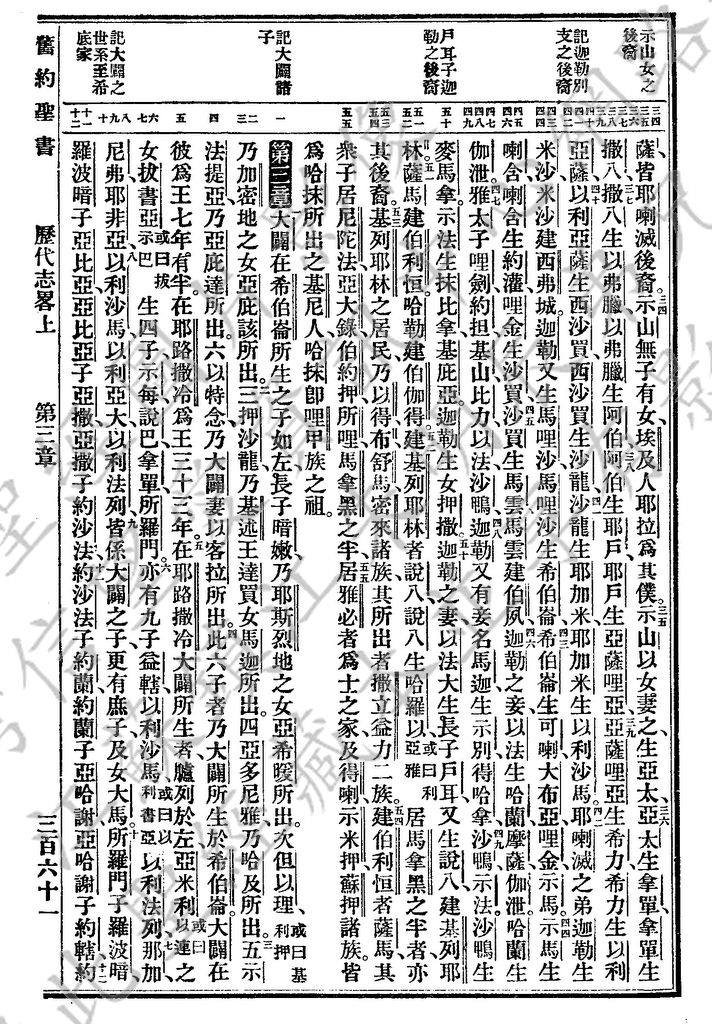 舊約聖書 歷代志畧上 第三章 三百六十一
示山女之後裔
記迦勒別支之後裔
戶耳子迦勒之後裔
記大闢諸子
記大闢之世系至希底家
薩皆耶喇滅後裔示山無子有女埃及人耶拉為其僕示山以女妻之生亞太亞太生拿單拿單生
撒八撒八生以弗臘以弗臘生阿伯阿伯生耶戶耶戶生亞薩哩亞亞薩哩亞生希力希力生以利
亞薩以利亞薩生西沙買西沙買生沙龍沙龍生耶加米耶加米生以利沙馬耶喇滅之弟迦勒生
米沙米沙建西弗城迦勒又生馬哩沙馬哩沙生希伯崙希伯崙生可喇大布亞哩金示馬示馬生
喇含喇含生約灌哩金生沙買沙買生馬雲馬雲建伯夙迦勒之妾以法生哈蘭摩薩伽泄哈蘭生
伽泄雅太子哩劍約担基山比力以法沙鴨迦勒又有妾名馬迦生示別得哈拿沙鴨示法沙鴨生
麥馬拿示法生抹比拿基庇亞迦勒生女押撒迦勒之妻以法大生長子戶耳又生說八建基列耶
林薩馬建伯利恒哈勒建伯伽得建基列耶林者說八說八生哈羅以或曰利亞雅居馬拿黑之半者亦
其後裔基列耶林之居民乃以得布舒馬密來諸族其所出者撒立益力二族建伯利恒者薩馬其
衆子居尼陀法亞大錄伯約押所哩馬拿黑之半居雅必者為士之家及得喇示米押蘇押諸族皆
為哈抹所出之基尼人哈抹卽哩甲族之祖
第三章大闢在希伯崙所生之子如左長子暗嫩乃耶斯烈地之女亞希暖所出次但以理或曰基利押
乃加密地之女亞庇該所出三押沙龍乃基述王達買女馬迦所出四亞多尼雅乃哈及所出五示
法提亞乃亞庇達所出六以特念乃大闢妻以客拉所出此六子者乃大闢所生於希伯崙大闢在
彼為王七年有半在耶路撒冷為王三十三年在耶路撒冷大闢所生者臚列於左亞米利或曰以連之
女拔書亞或曰拔示巴生四子示每說巴拿單所羅門亦有九子益轄以利沙馬或曰以利書亞以利法列那加
尼弗耶非亞以利沙馬以利亞大以利法列皆係大闢之子更有庶子及女大馬所羅門子羅波暗
羅波暗子亞比亞亞比亞子亞撒亞撒子約沙法約沙法子約蘭約蘭子亞哈謝亞哈謝子約轄約